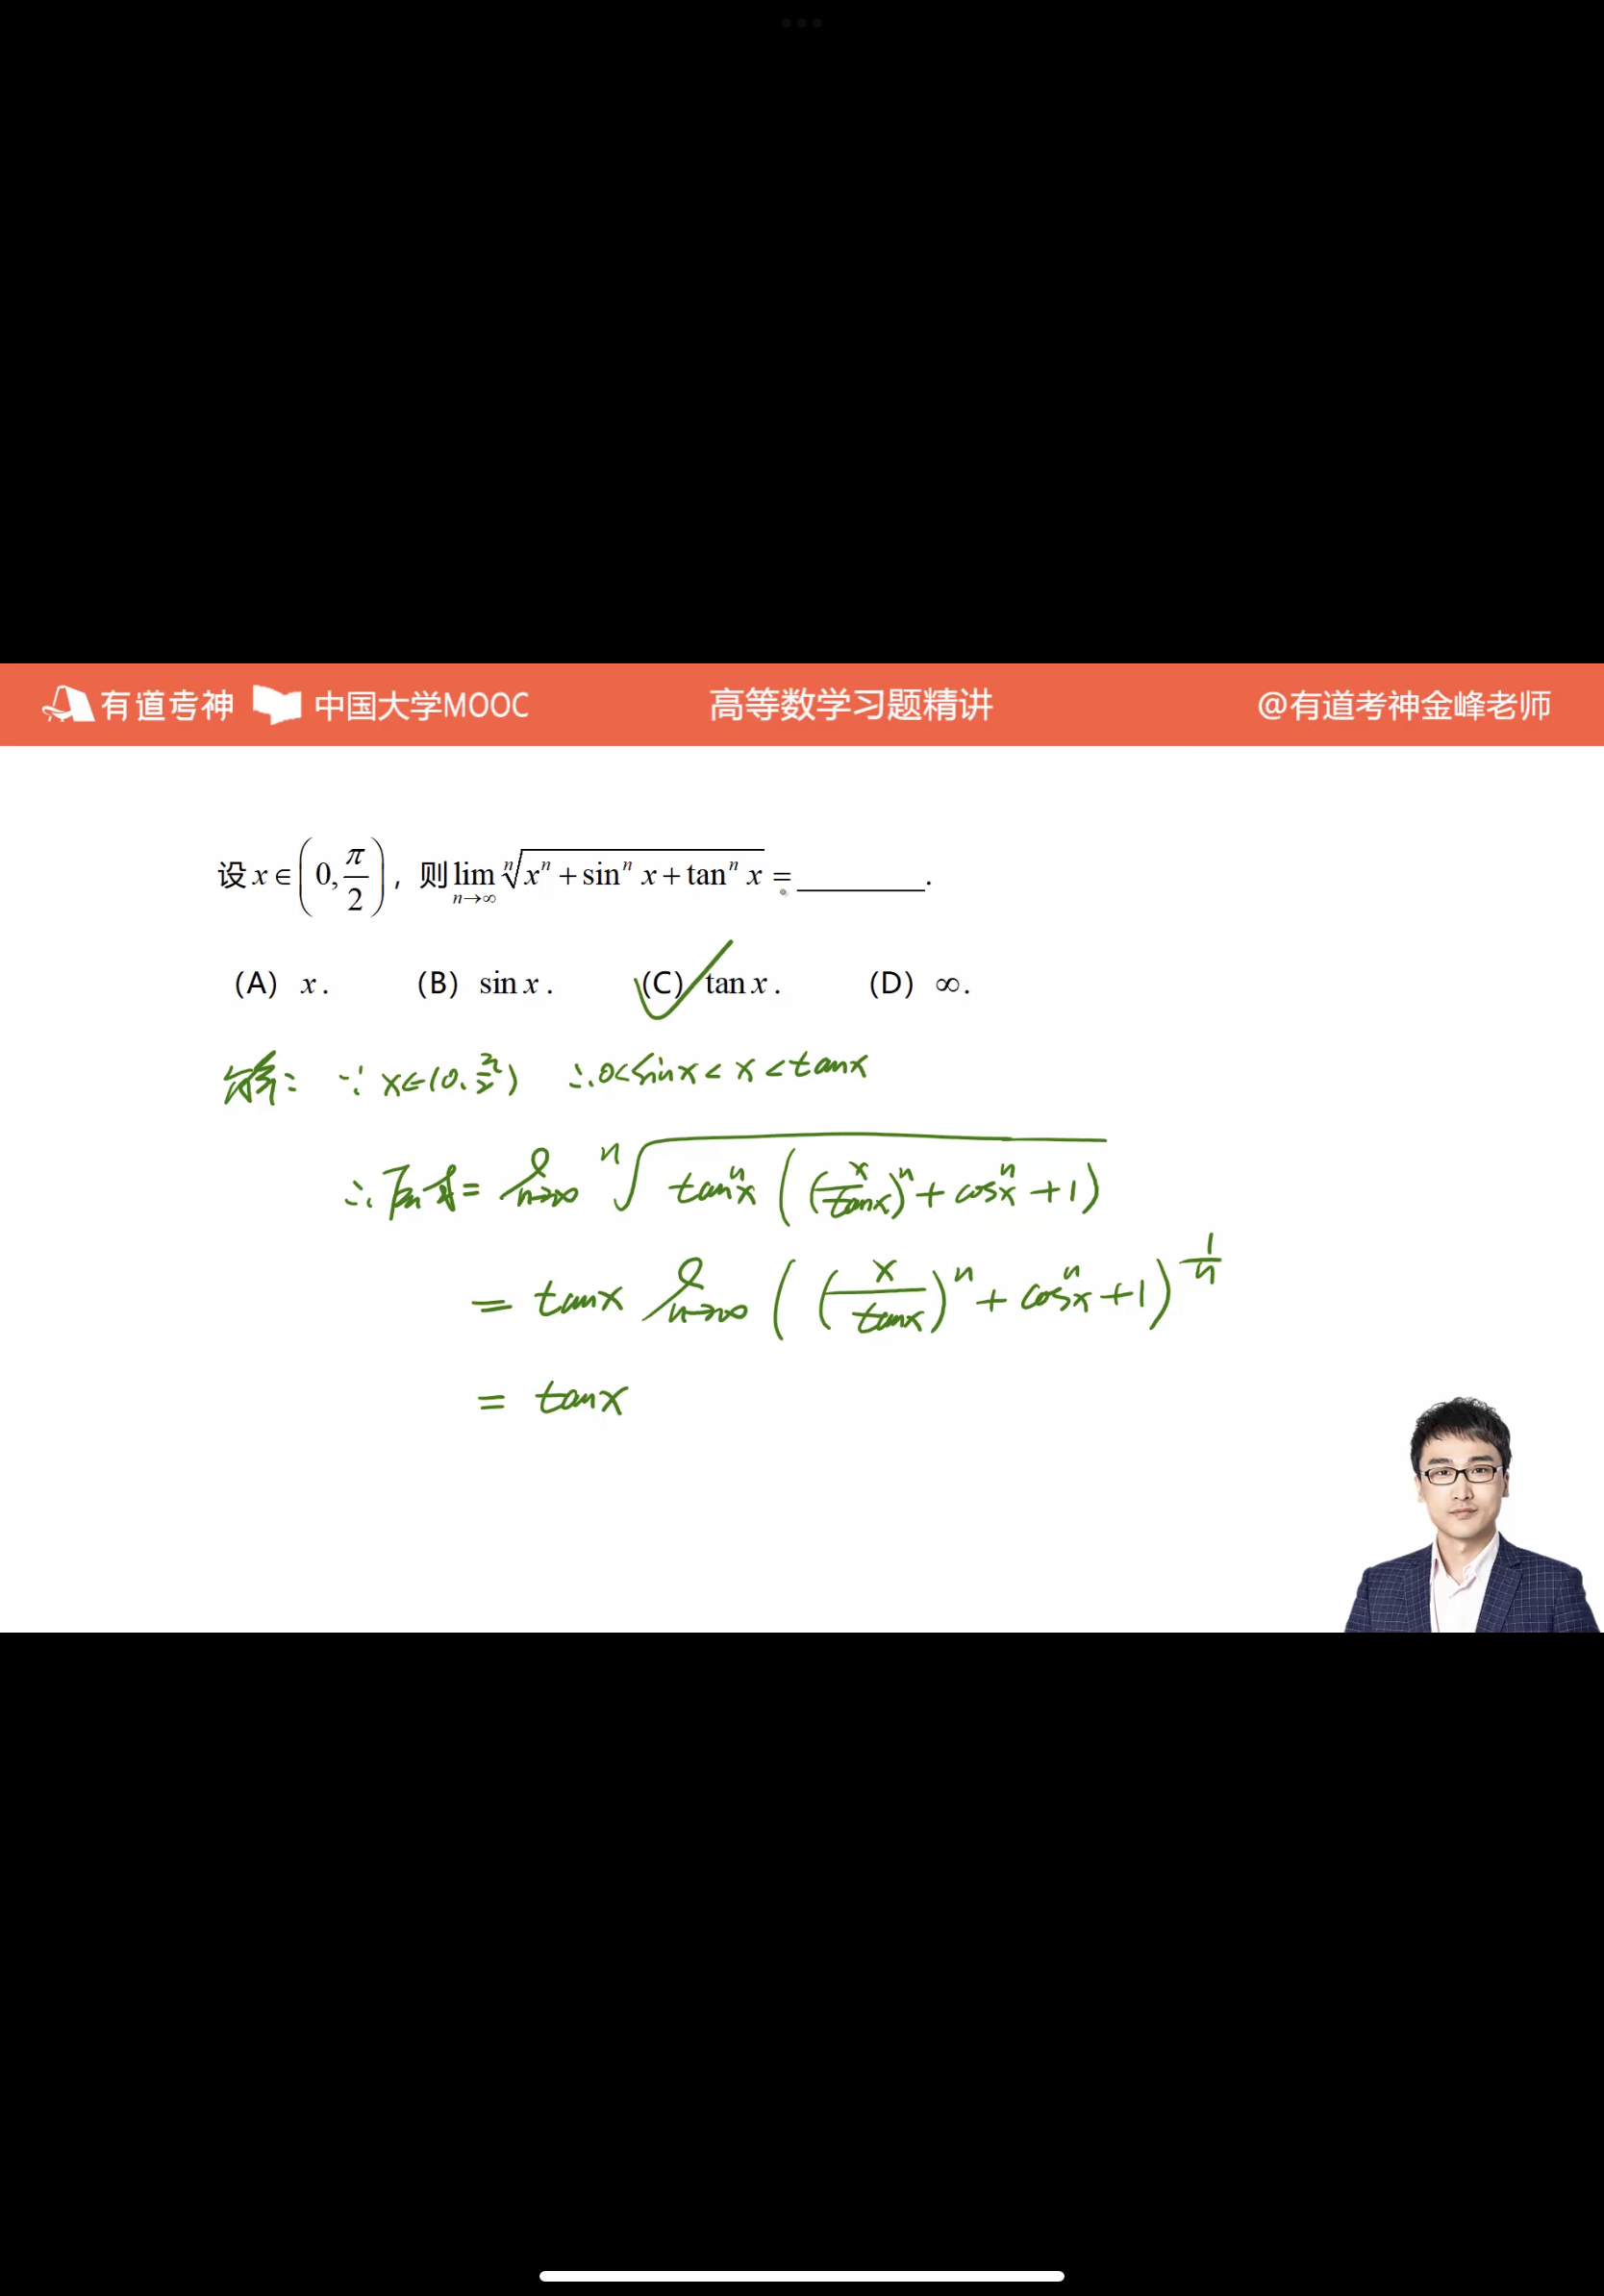 有道考神 中国大学MOOC 高等数学习题精讲 @有道考神金峰老师
设 x∈(0, π/2), 则 lim n→∞ ⁿ√(xⁿ + sinⁿ x + tanⁿ x) = ________.
(A) x. (B) sin x. (C) tan x. (D) ∞.
解: ∵ x∈(0, π/2) ∴ 0<sinx < x < tanx
∴ 原式 = lim n→∞ ⁿ√(tanⁿx ((x/tanx)ⁿ + cosⁿx + 1))
= tanx lim n→∞ ((x/tanx)ⁿ + cosⁿx + 1)^(1/n)
= tanx